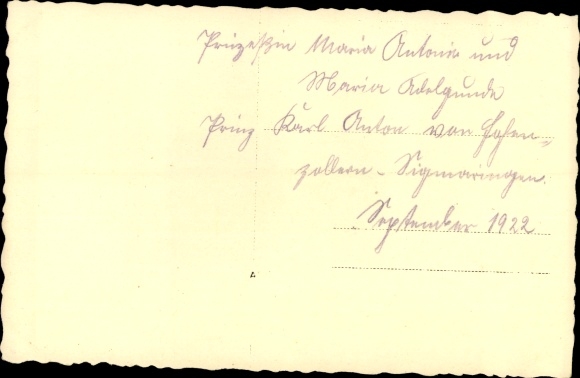 Prinzeßin Maria Antonia und
Maria Adelgunde
Prinz Karl Anton von Hohen„
zollern - Sigmaringen.
September 1922